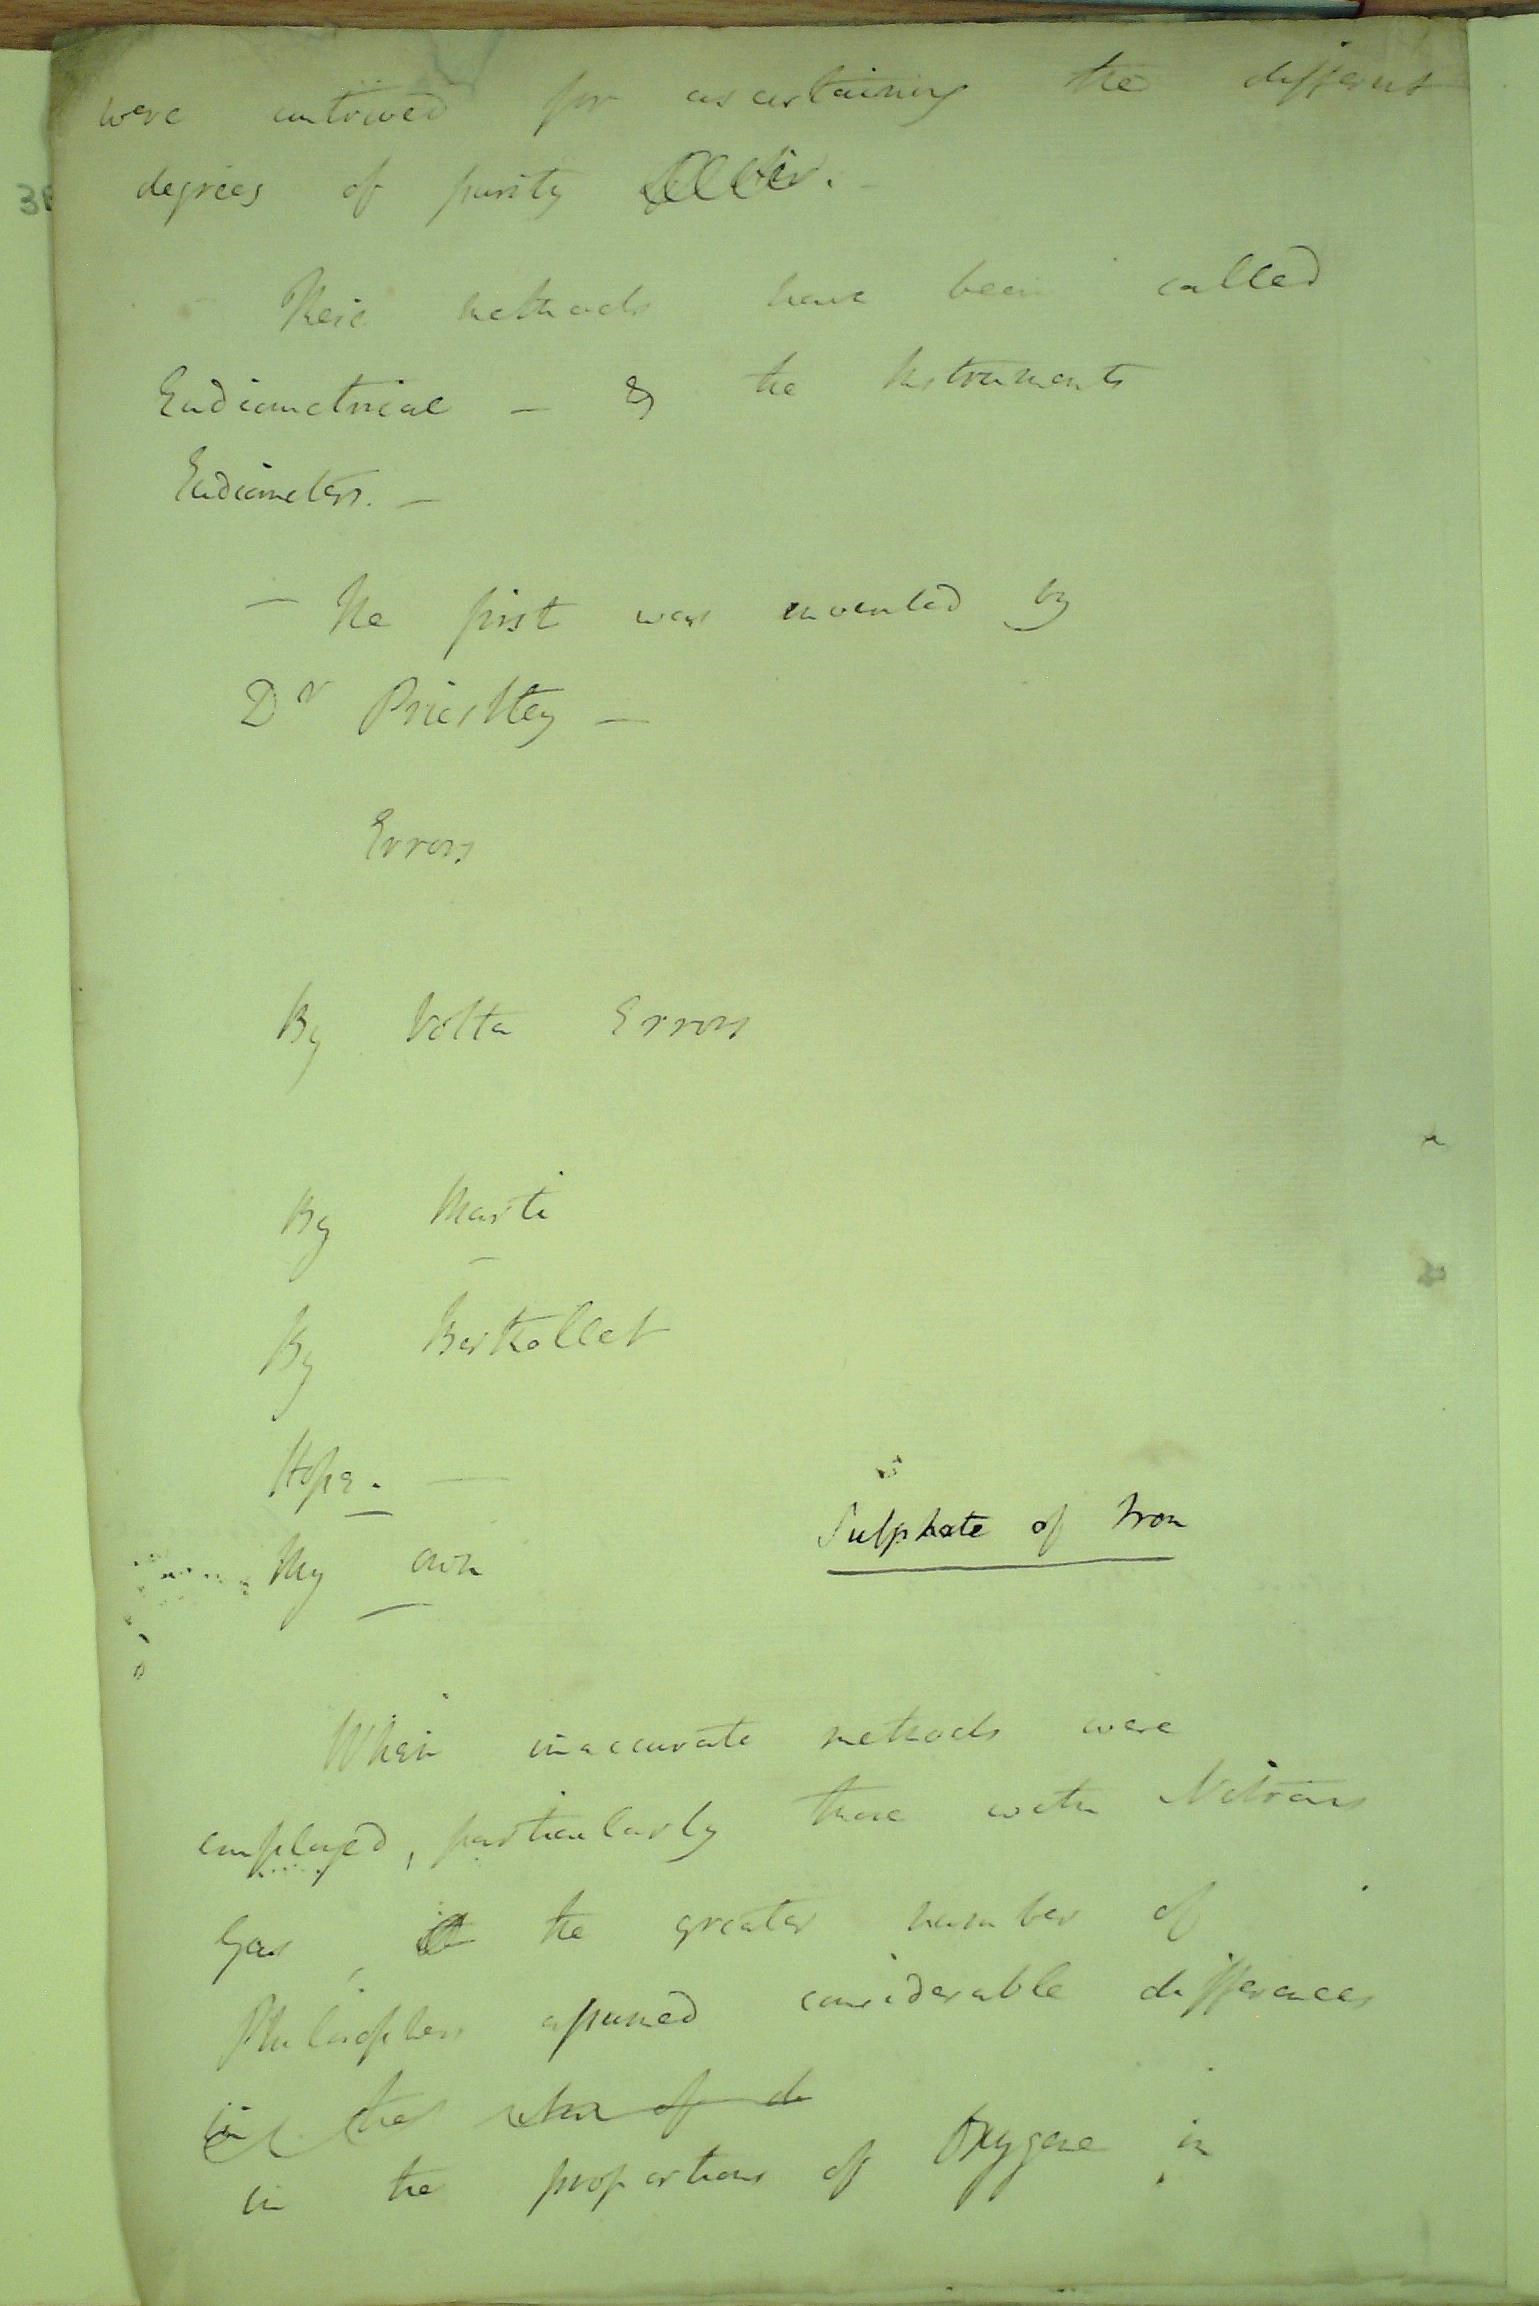 were contrived for ascertaining the different
degrees of purity of Air. -
These methods have been called
Eudiometrical - & the Instruments
Eudiometers. -
- The first was invented by
Dr Priestley -
Errors
By Volta Errors
By Marti
By Berthollet
Hope. -
Sulphate of Iron
My own
When inaccurate methods were
employed, particularly those with Nitrous
Gas, the greater number of
Philosophers assumed considerable differences
in the of
in the proportions of Oxygene in